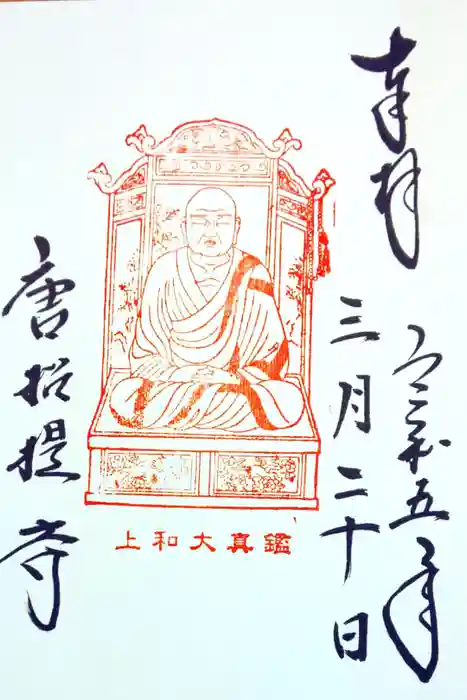 奉拝
令和五年
三月二十日
上和大真鑑
唐招提寺